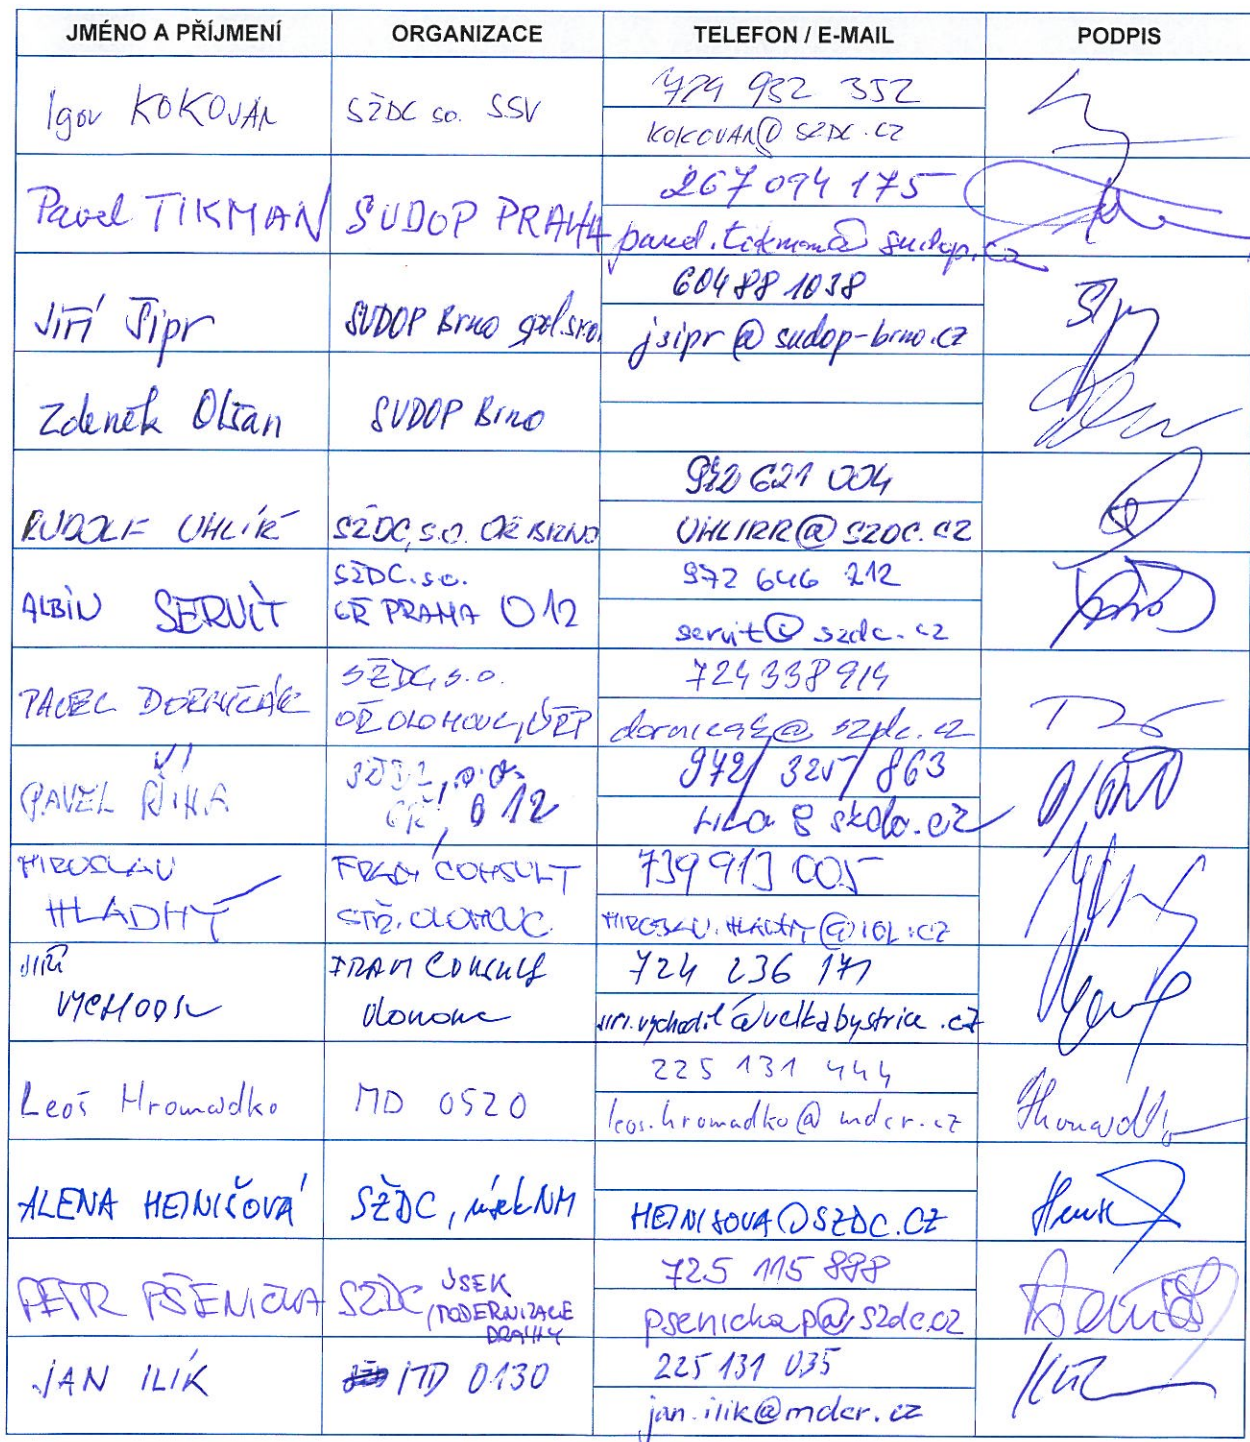 JMÉNO A PŘÍJMENÍ ORGANIZACE TELEFON / E-MAIL PODPIS
Igor KOKOVAN SŽDC so. SSV 724 932 352
KOKOVAN@SZDC.CZ
Pavel TIKMAN SUDOP PRAHA 267 094 175
pavel.tikman@sudop.cz
Jiří Šipr SUDOP Brno spol.sro. 604 88 1038
jsipr@sudop-brno.cz
Zdeněk Olšan SUDOP Brno
RUDOLF UHLÍŘ SŽDC, s.o. OŘ BRNO 972 621 004
UHLIRR@SZDC.CZ
ALBÍN SERVÍT SŽDC.s.o. GŘ PRAHA O12 972 646 212
servit@szdc.cz
PAVEL DORNIČÁK SŽDC, s.o. OŘ OLOMOUC, ÚŘP 724 338 914
dornicak@szdc.cz
PAVEL ŘÍHA GŘ, O 12 972/ 325/ 863
MIROSLAV HLADNÝ FRAM CONSULT STŘ. OLOMOUC 739 913 005
MIROSLAV.HLADNY@IOL.CZ
JIŘÍ VYCHODIL FRAM Consult Olomouc 724 236 171
jiri.vychodil@velkabystrice.cz
Leoš Hromadko MD O520 225 131 444
leos.hromadko@mdcr.cz
ALENA HEJNIŠOVÁ SŽDC, úsek NM
HEJNISOVA@SZDC.CZ
PETR PŠENIČKA SŽDC, ÚSEK MODERNIZACE DRÁHY 725 115 898
psenickap@szdc.cz
JAN ILÍK MD O130 225 131 035
jan.ilik@mdcr.cz